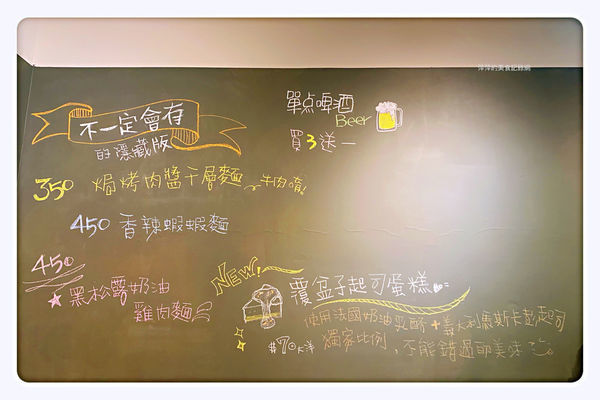 不一定會有
的隱藏版
350 焗烤肉醬千層麵~牛肉唷!
450 香辣蝦蝦麵
450
黑松露奶油
雞肉麵
單点啤酒
Beer
買3送一
NEW!
覆盆子起司蛋糕
使用法國奶油乳酪+義大利馬斯卡彭起司
獨家比例,不能錯過的美味
$70